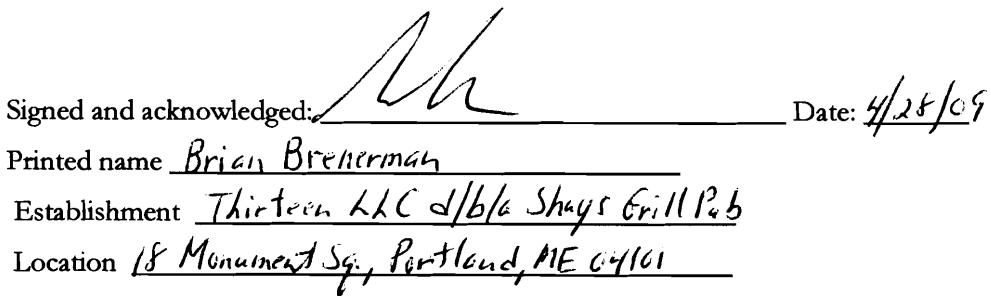 Signed and acknowledged: Date: 4/28/09
Printed name Brian Brenerman
Establishment Thirteen LLC d/b/a Shays Grill Pub
Location 18 Monument Sq., Portland, ME 04101